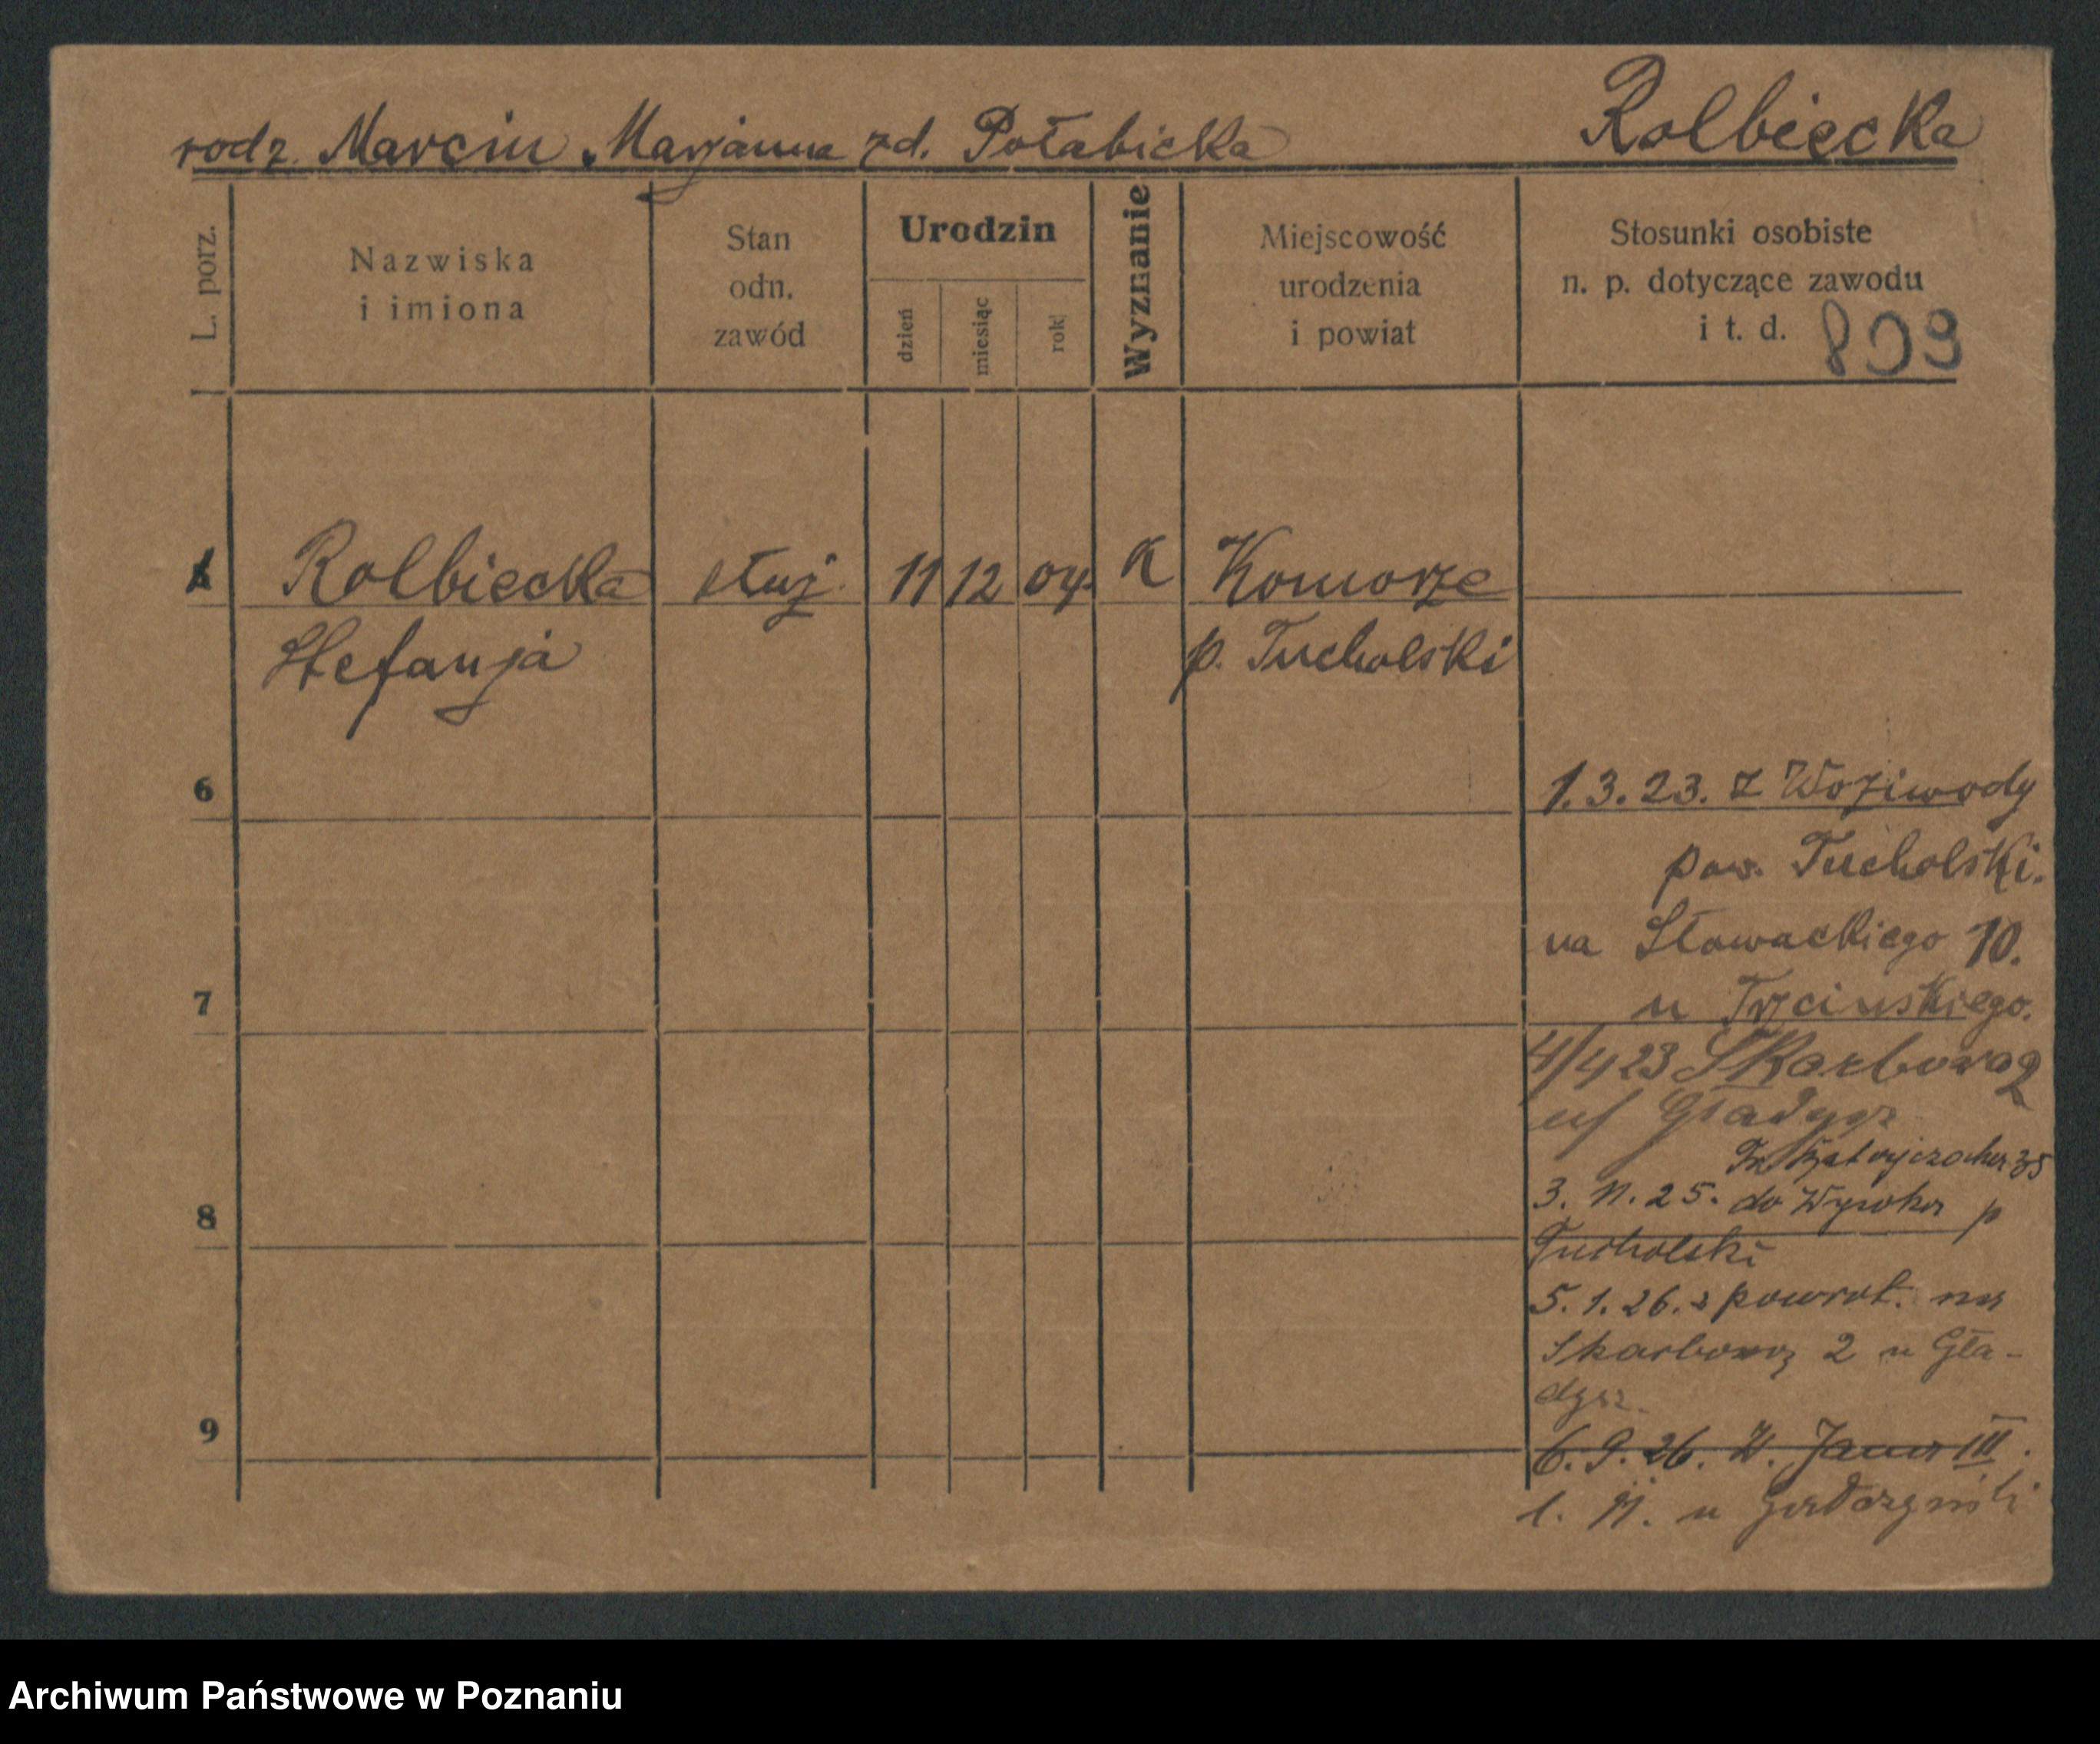 rodz. Marcin, Marjanna zd. Połabicka Rolbiecka
L. porz.
Nazwiska
i imiona
Stan
odn.
zawód
Urodzin
dzień
miesiąc
rok
Wyznanie
Miejscowość
urodzenia
i powiat
Stosunki osobiste
n. p. dotyczące zawodu
i t. d. 809
Rolbiecka służ. 11 12 04. K Komorze
Stefanja p. Tucholski
6
1.3.23. z Woziwody
pow. Tucholski.
na Słowackiego 10.
u Trzcinskiego.
7
4/4 23 Skarbowa 2
Gładysz
3. 11. 25. do Wysoka p
8
Tucholski
5. 1. 26. z powrot. na
Skarbową 2 u Gła-
dysz.
9
6. 9. 26. W. Jana III.
l. 11. u
Archiwum Państwowe w Poznaniu